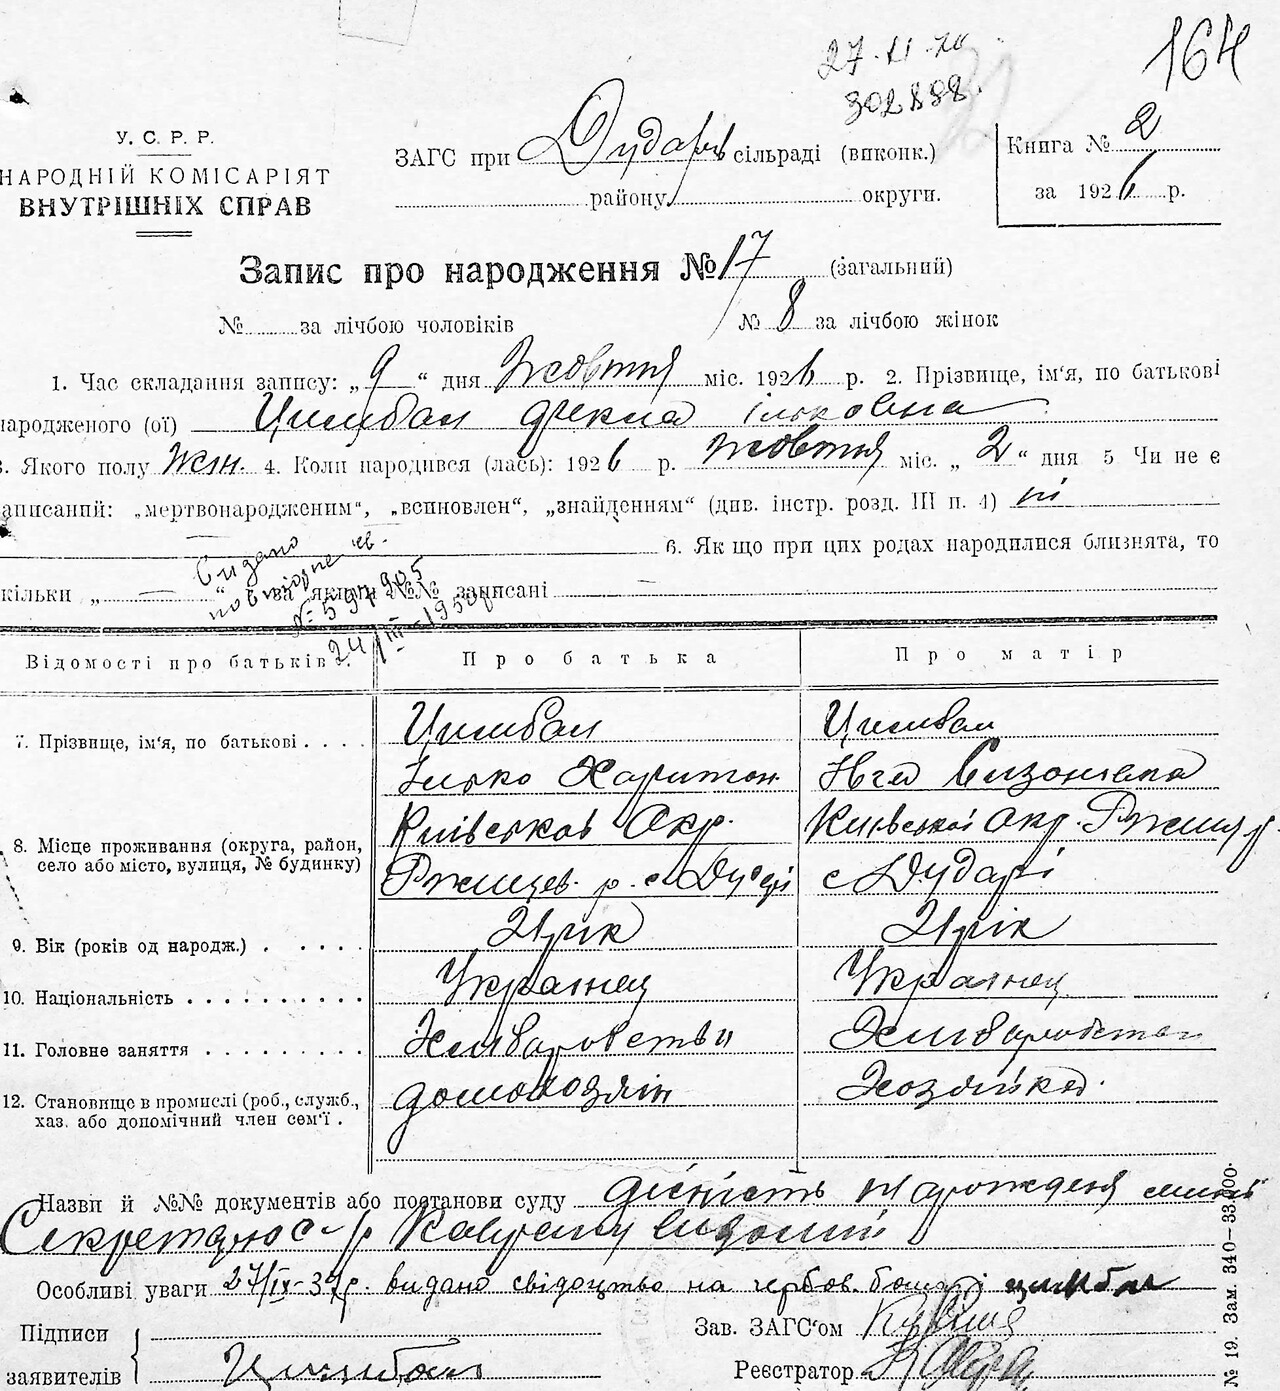 164
302888
У. С. Р. Р.
НАРОДНІЙ КОМІСАРІЯТ
ВНУТРІШНІХ СПРАВ
ЗАГС при Дударів сільраді (виконк.)
району округи.
Книга № 2
за 1926 р.
Запис про народження № 17 (загальний)
№ за лічбою чоловіків № 8 за лічбою жінок
1. Час складання запису: „ 9 “ дня жовтня міс. 1926 р. 2. Прізвище, ім‘я, по батькові
народженого (ої) Цимбал Фекла Ільковна
3. Якого полу жін. 4. Коли народився (лась): 1926 р. жовтня міс. „ 2 “ дня 5 Чи не є
записаний: „мертвонародженим“, „всиновлен“, „знайденням“ (див. інстр. розд. III п. 4) ні
6. Як що при цих родах народилися близнята, то
скільки „ — “ і за якими №№ записані —
Видано
повторне св.
№ 597905
24/III-1950р
Відомості про батьків. Про батька Про матір
7. Прізвище, ім‘я, по батькові . . . . Цимбал Цимбал
Ілько Харитон.
8. Місце проживання (округа, район, село або місто, вулиця, № будинку) Київської Окр. Київської Окр. Ржищ р.
Ржищев. р. с Дударі с Дударі
9. Вік (років од народж.) . . . . . 21 рік 21 рік
10. Національність . . . . . . . . . . Украінец Украінец
11. Головне заняття . . . . . . . . . Хліборобство Хліборобство
12. Становище в промислі (роб., служб., хаз. або допомічний член сем‘ї . домохозяін Хозяйка.
Назви й №№ документів або постанови суду дісність народженя мині
Секретарю с-р видомий
Особливі уваги 27/IX-39р. видано свідоцтво на гербов. бомазі Цимбал
Підписи
заявителів Цимбал
Зав. ЗАГС‘ом
Реєстратор
№ 19. Зам. 340—33.000.